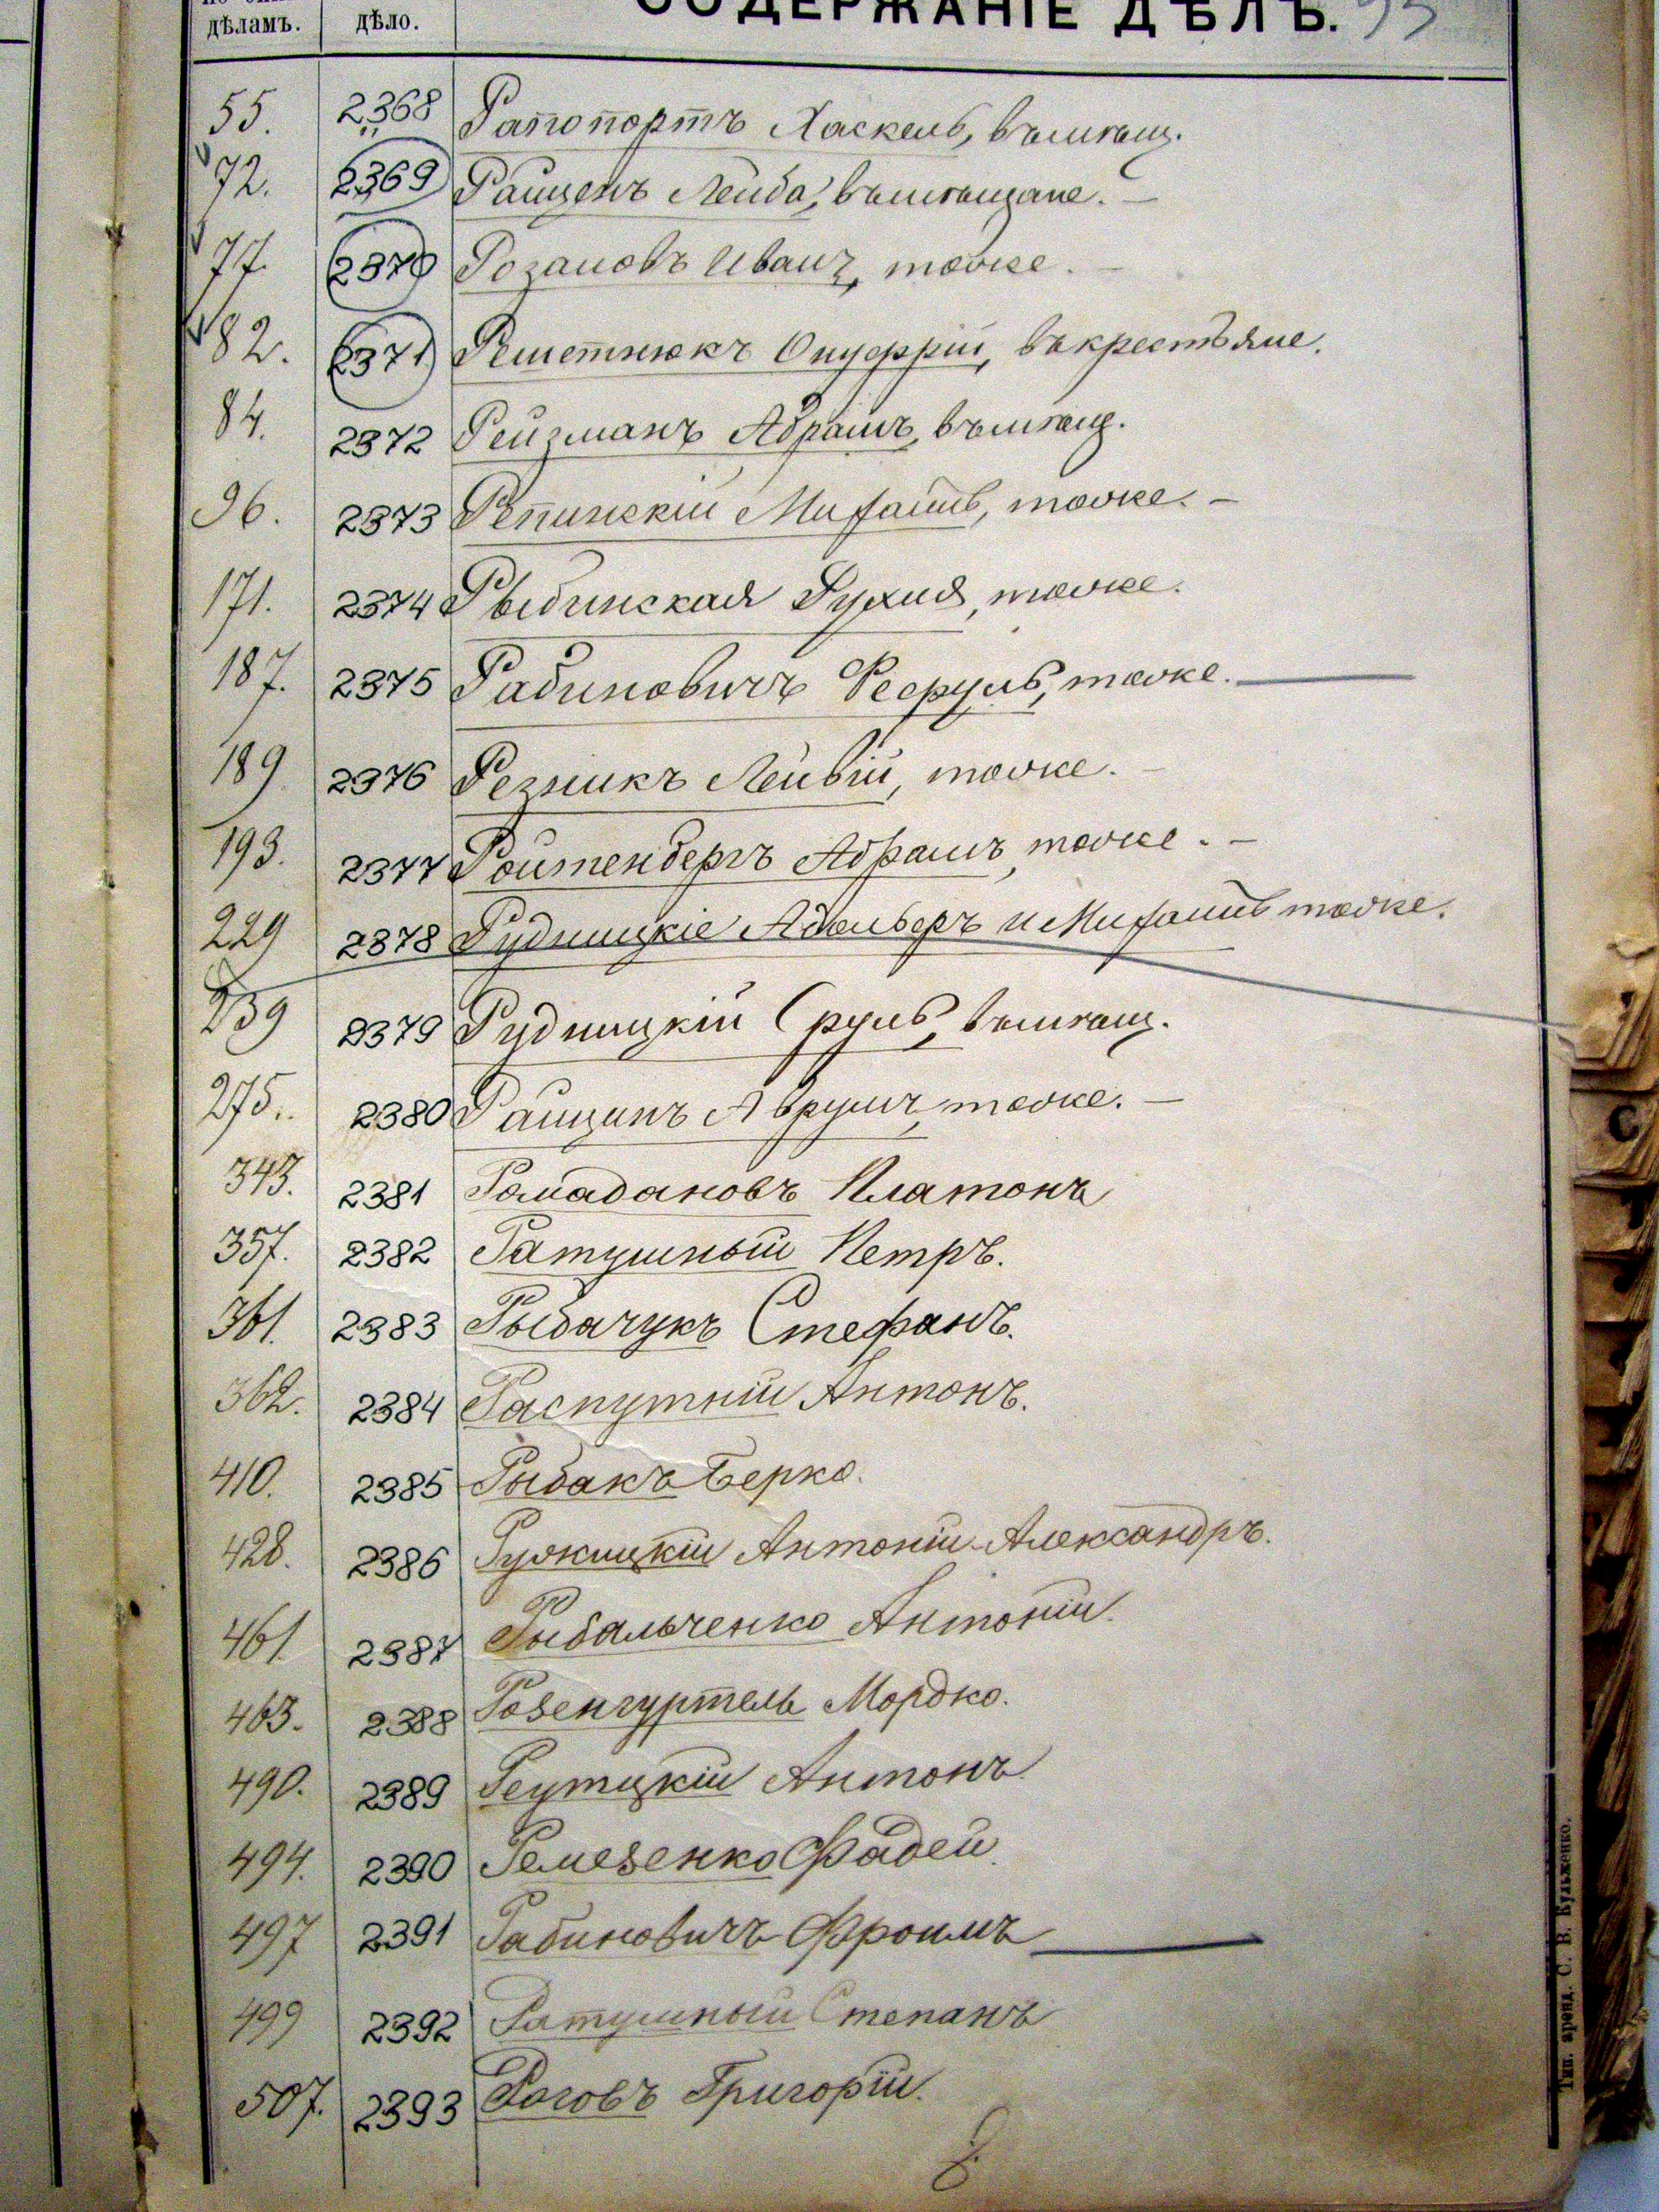 дѣламъ. дѣло. СОДЕРЖАНІЕ ДѢЛЪ. 95
55. 2368 Рапопортъ Хаскель, въ мѣщ.
72. 2369 Райценъ Лейба, въ мѣщане. —
77. 2370 Розановъ Иванъ, тоже. —
82. 2371 Решетнюкъ Онуфрій, въ крестьяне.
84. 2372 Рейзманъ Абрамъ, въ мѣщ.
96. 2373 Репинскій Михаилъ, тоже. —
171. 2374 Рыбинская Рухля, тоже.
187. 2375 Рабиновичъ тоже. —
189 2376 Резникъ тоже. —
193. 2377 Ройтенбергъ Абрамъ, тоже. —
229 2378 Рудницкіе и Михаилъ тоже.
239 2379 Рудницкій Сруль, въ мѣщ.
275. 2380 Райцинъ Аврумъ, тоже. —
343. 2381 Ромадановъ Платонъ
357. 2382 Ратушный Петръ.
361. 2383 Рыбачукъ Стефанъ.
362. 2384 Распутній Антонъ.
410. 2385 Рыбакъ Берко.
428. 2386 Ружицкій Антоній-Александръ.
461. 2387 Рыбальченко Антоній.
463. 2388 Розенгуртель Мордко.
490. 2389 Реутцкій Антонъ
494. 2390 Ремезенко Фадей.
497 2391 Рабиновичъ Фроимъ
499 2392 Ратушный Степанъ
507. 2393 Роговъ Григорій.
Тип. аренд. С. В. Кульженко.
С